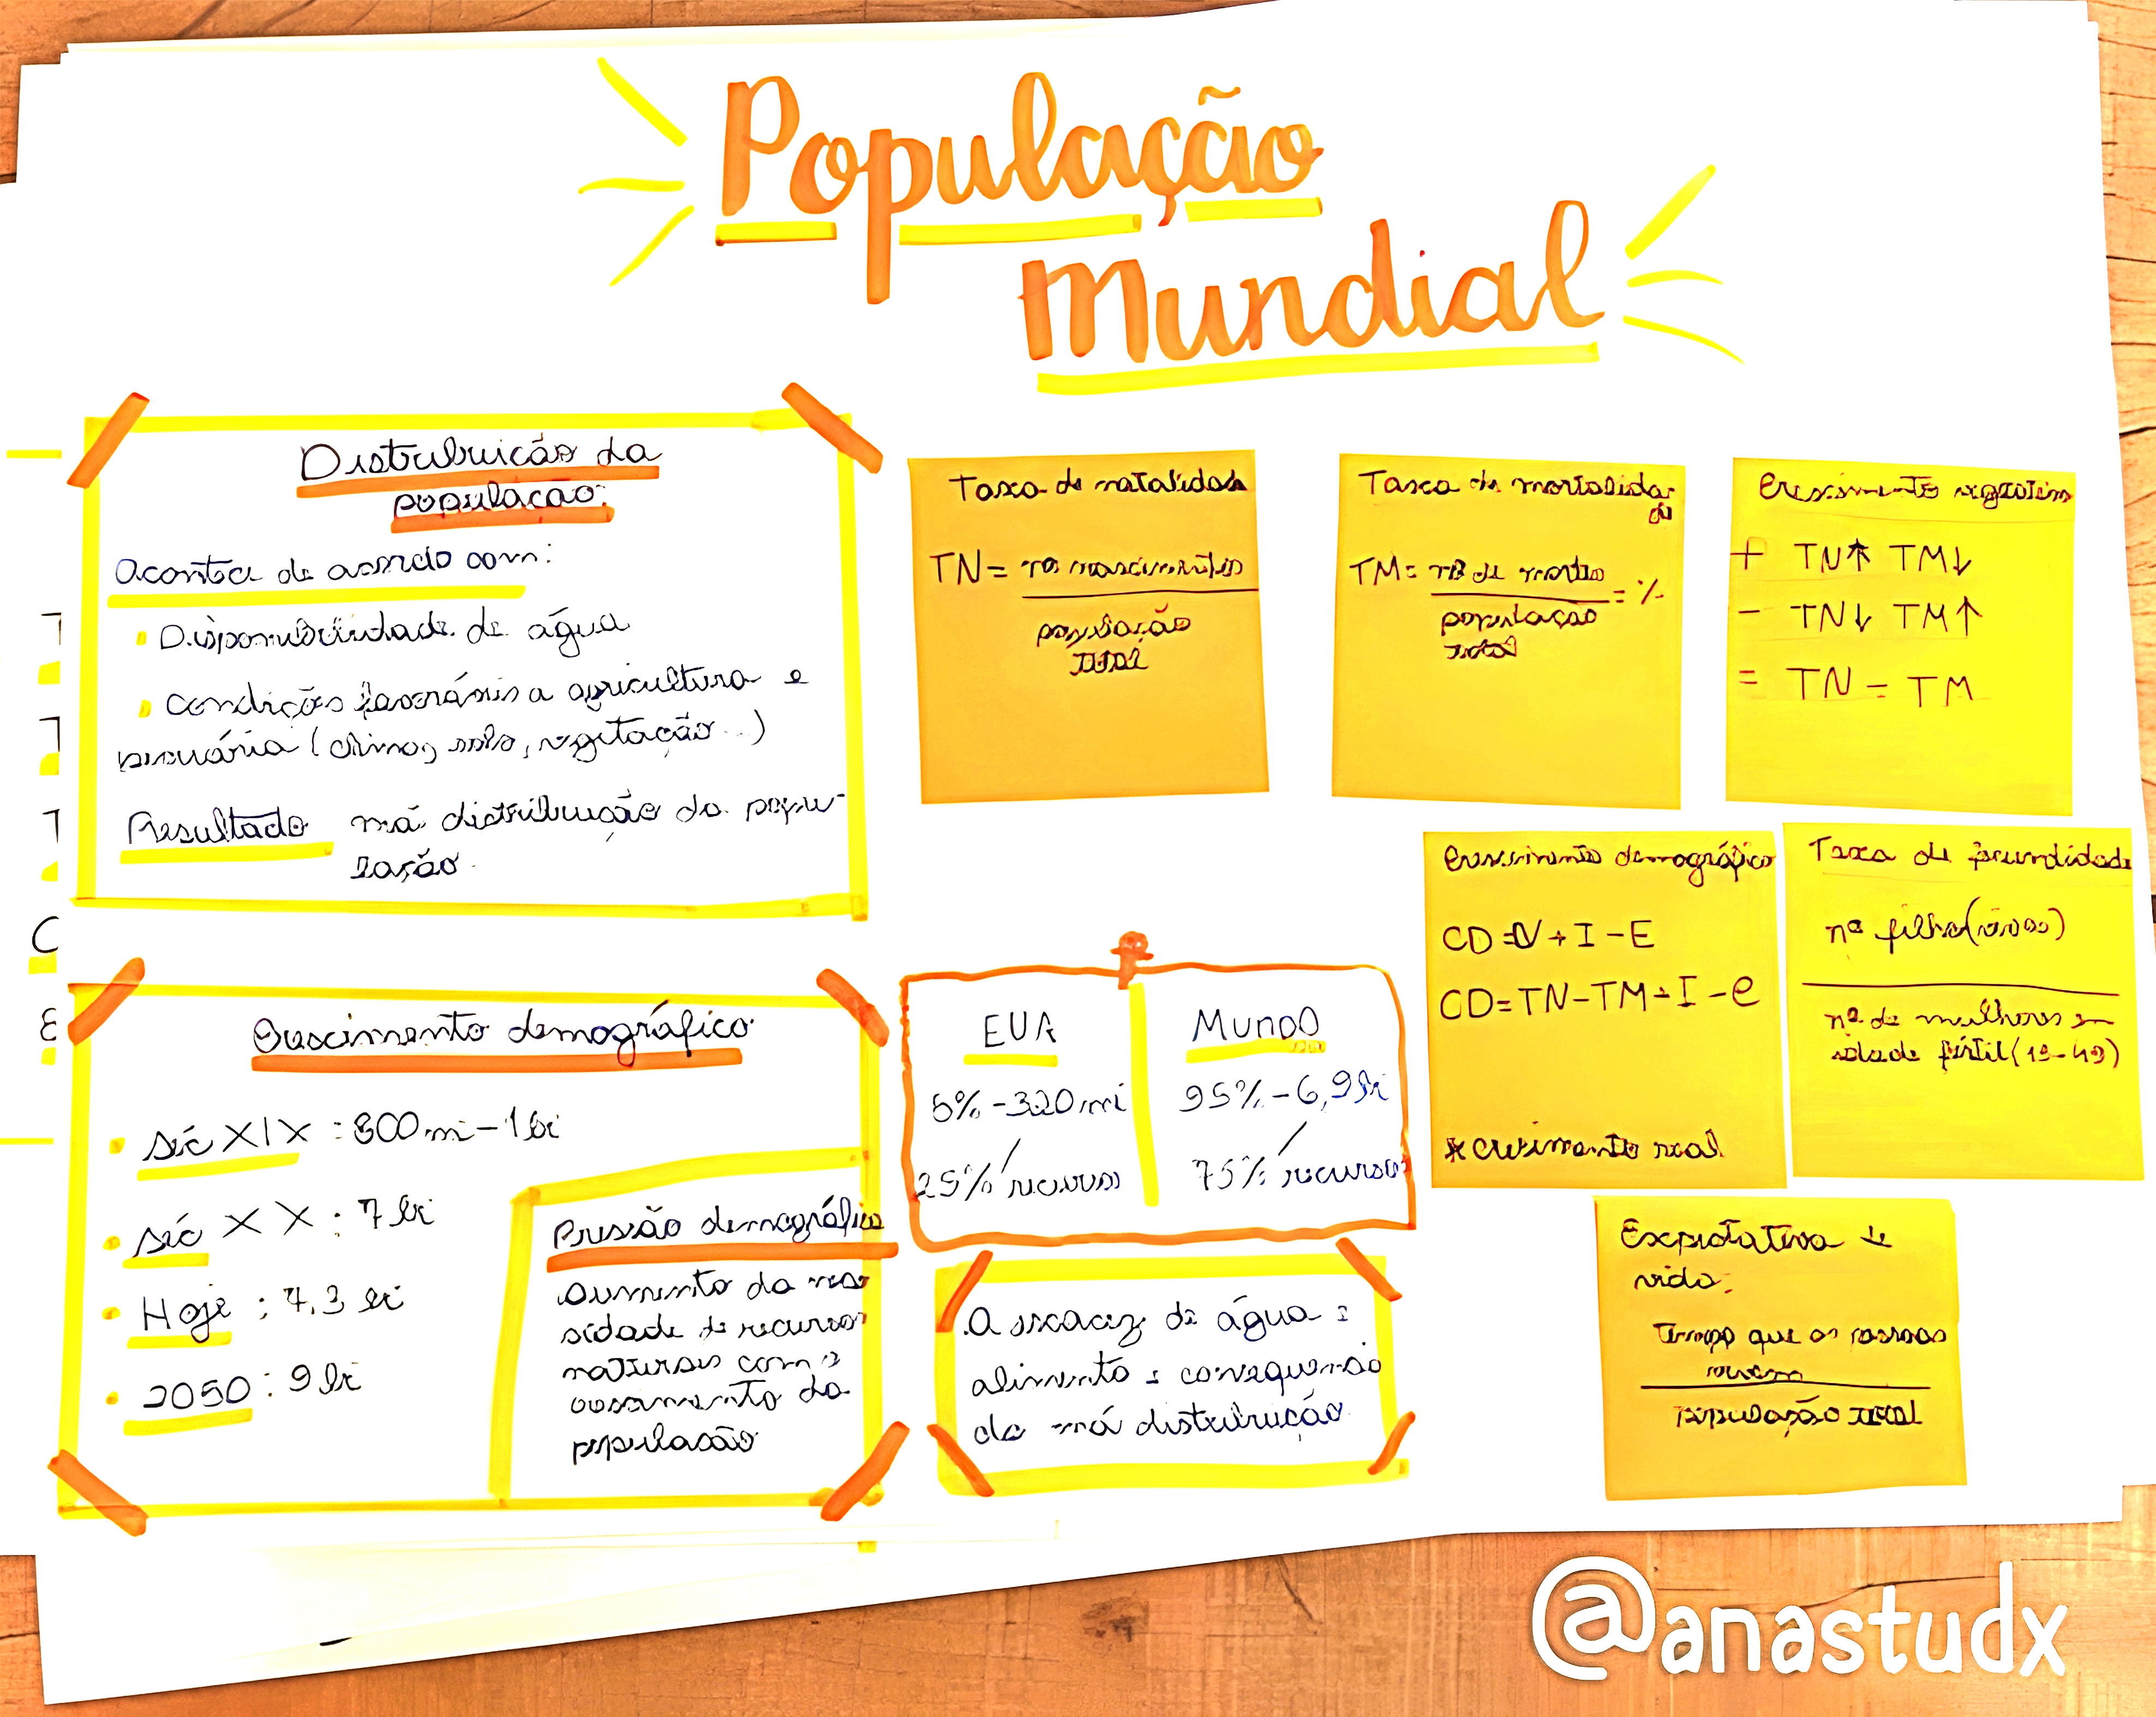 População
Mundial
Distribuição da
população:
Acontece de acordo com:
Disponibilidade de água
Condições favoráveis a agricultura e
pecuária (clima, solo, vegetação...)
Resultado má distribuição da popu-
lação.
Taxa de natalidade
TN = nº nascimentos
população
total
Taxa de mortalida-
de
TM = nº de mortes = %
população
total
Crescimento vegetativo
+ TN↑ TM↓
- TN↓ TM↑
= TN = TM
Crescimento demográfico
CD = V + I - E
CD = TN - TM + I - e
* crescimento real
Taxa de fecundidade
nº filho (vivos)
nº de mulheres em
idade fértil (15-49)
Crescimento demográfico
séc XIX : 800 mi - 1 bi
séc XX : 7 bi
Hoje : 7,3 bi
2050 : 9 bi
Pressão demográfica
Aumento da
sidade de recursos
naturais com o
da
população
EUA
5% - 320 mi
25% recursos
Mundo
95% - 6,9 bi
75% recursos
A escacez de água e
alimento é consequencia
da má distribuição
Expectativa de
vida:
Tempo que as pessoas
vivem
população total
@anastudx